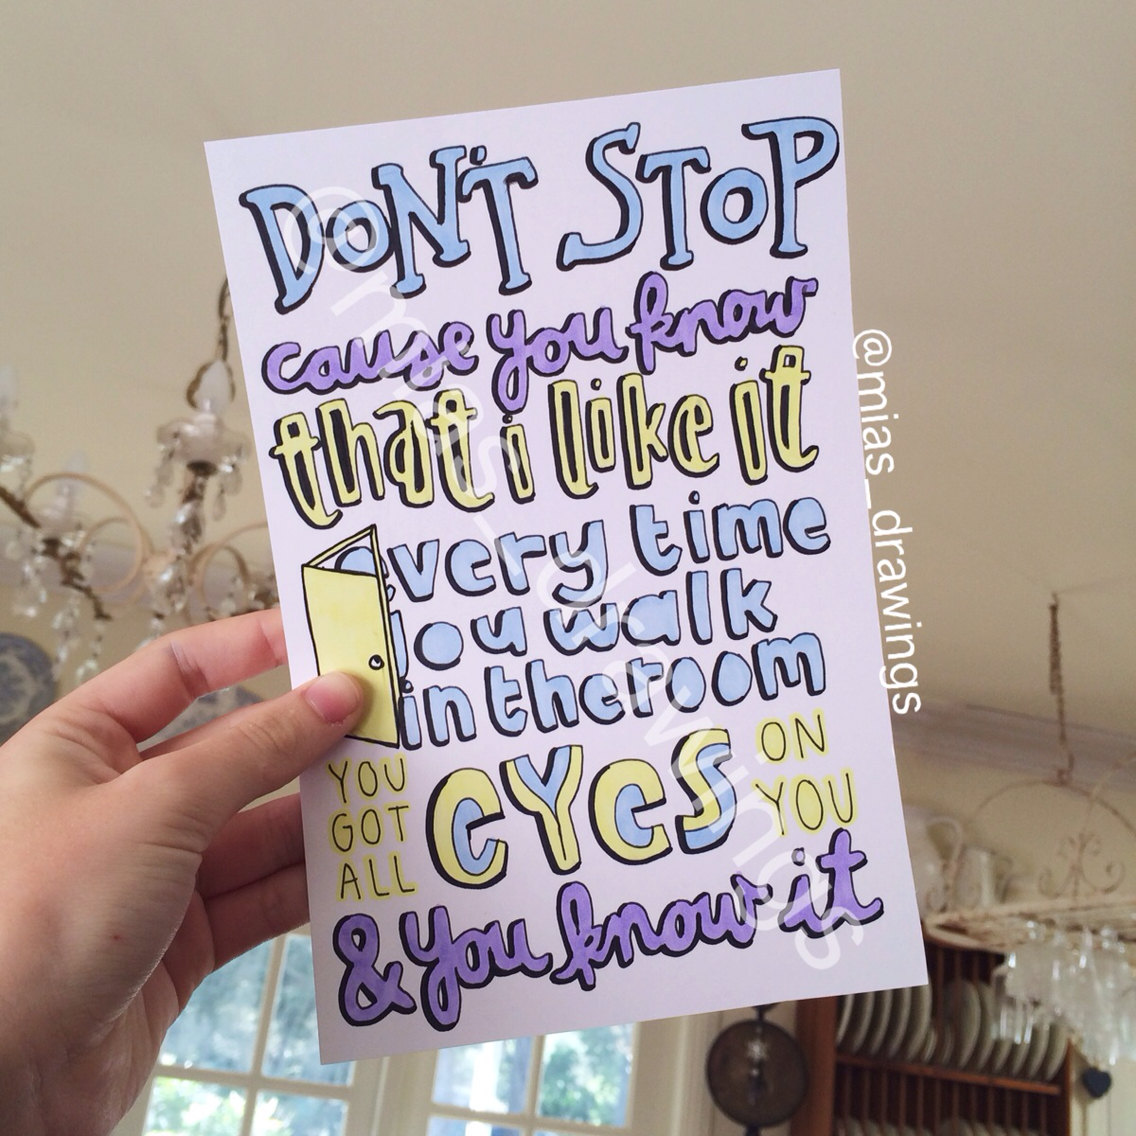 DON'T STOP
cause you know
that i like it
every time
you walk
in the room
YOU
GOT
ALL
eYes
ON
YOU
& you know it
@mias_drawings
@mias_drawings